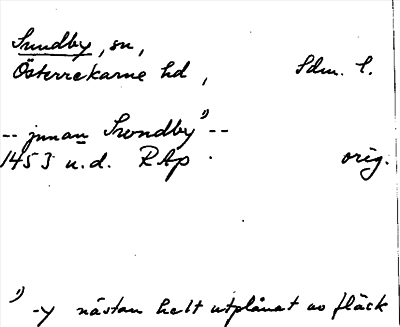 Sundby, sn,
Österrekarne hd, Sdm. l.
-- jnnan Swndby 1) --
1453 u.d. RAp orig.
1) -y nästan helt utplånat av fläck